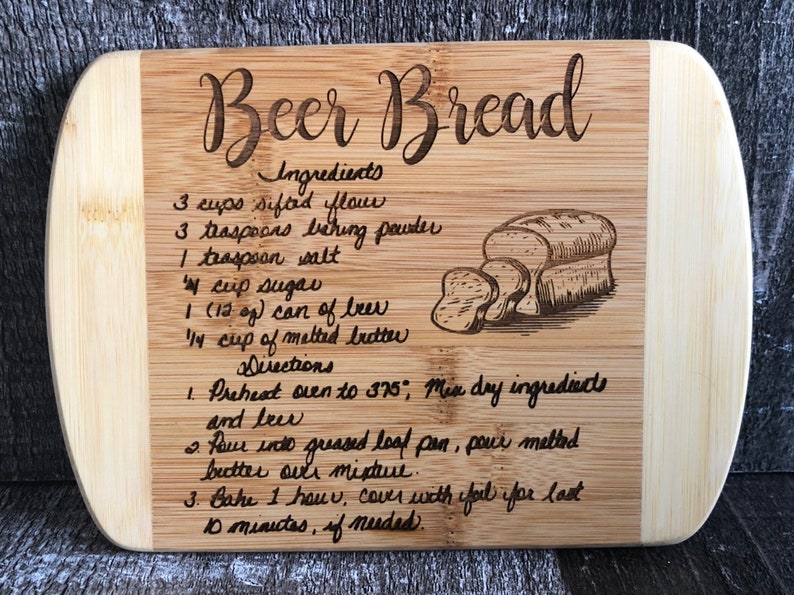 Beer Bread
Ingredients
3 cups sifted flour
3 teaspoons baking powder
1 teaspoon salt
1/4 cup sugar
1 (12 oz) can of beer
1/4 cup of melted butter
Directions
1. Preheat oven to 375°, Mix dry ingredients
and beer
2. Pour into greased loaf pan, pour melted
butter over mixture.
3. Bake 1 hour, cover with foil for last
10 minutes, if needed.